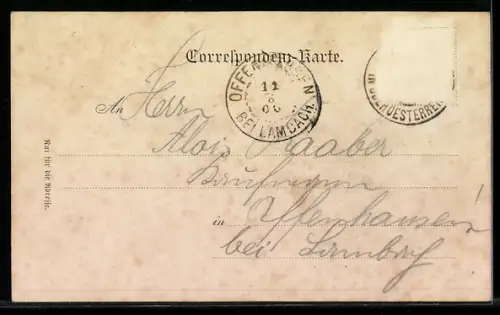 Correspondenz-Karte.
OFFENHAUSEN
12
8
06
BEI LAMBACH
IN OBEROESTERREI
An Herrn
Alois Raaber
Kaufmann
in Offenhausen!
bei Lambach
Nur für die Adresse.